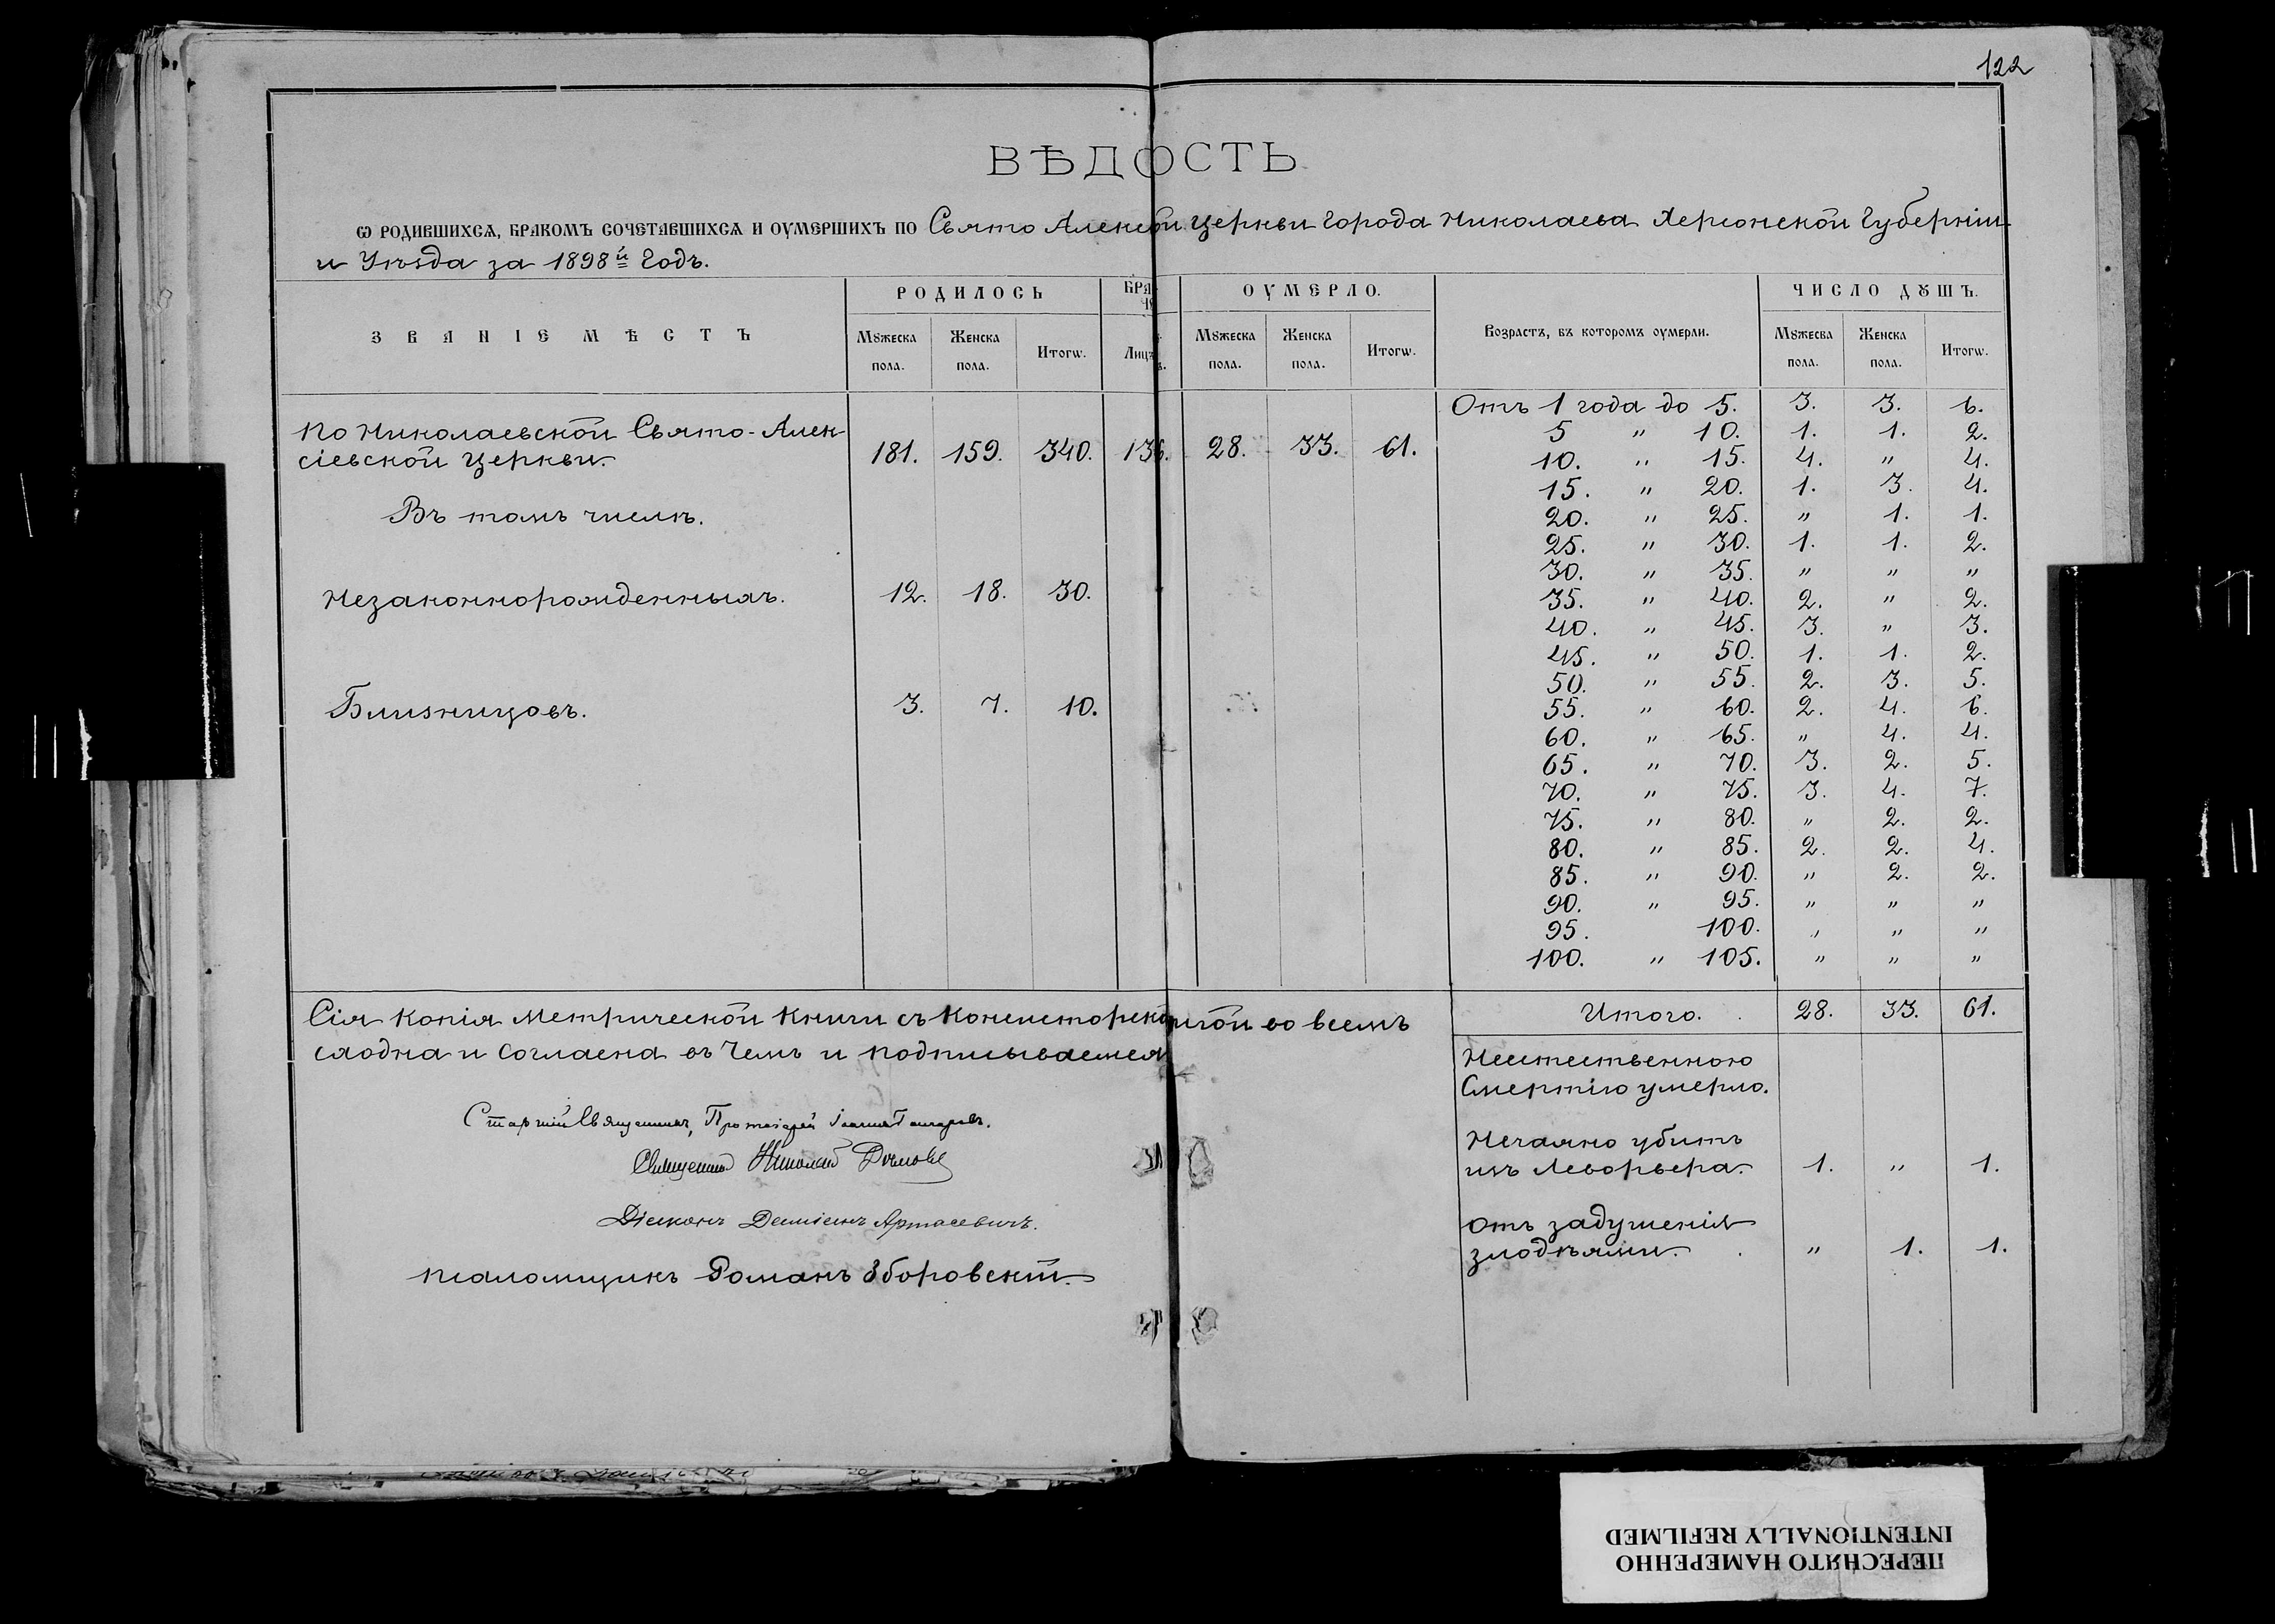 122
ВѢДОСТЬ
Ѡ РОДИВШИХСѦ, БРАКОМЪ СОЧЕТАВШИХСѦ И ОУМЕРШИХЪ ПО Свято Алексѣи. церкви города Николаева Херсонской Губерніи
и Уѣзда за 1898й Годъ.
ЗВАНІЕ МѢСТЪ РОДИЛОСЬ БРА ОУМЕРЛО. Возрастъ, въ которомъ оумерли. ЧИСЛО ДꙊШЪ.
Мꙋжеска пола. Женска пола. Итогѡ. Лицъ. Мꙋжеска пола. Женска пола. Итогѡ. Мꙋжесва пола. Женска пола. Итогѡ.
По Николаевской Свято-Алек-
сіевской церкви. 181. 159. 340. 136. 28. 33. 61.
Въ томъ числѣ.
Незаконнорожденныхъ. 12. 18. 30.
Близницовъ. 3. 7. 10.
Отъ 1 года до 5. 3. 3. 6.
5 " 10. 1. 1. 2.
10. " 15. 4. " 4.
15. " 20. 1. 3. 4.
20. " 25. " 1. 1.
25. " 30. 1. 1. 2.
30. " 35. " " "
35. " 40. 2. " 2.
40. " 45. 3. " 3.
45. " 50. 1. 1. 2.
50. " 55. 2. 3. 5.
55. " 60. 2. 4. 6.
60. " 65. " 4. 4.
65. " 70. 3. 2. 5.
70. " 75. 3. 4. 7.
75. " 80. " 2. 2.
80. " 85. 2. 2. 4.
85. " 90. " 2. 2.
90. " 95. " " "
95. 100. " " "
100. " 105. " " "
Итого. 28. 33. 61.
Сія копія Метрической Книги съ во всемъ
сходна и согласна въ чемъ и подписываемся
Старшій Священникъ, Протоіерей Іоаннъ
Священникъ Николай
Діаконъ Даміанъ Артасевичъ.
Псаломщикъ Романъ Зборовскій.
Неестественною
Смертію умерло.
Нечаяно убитъ
изъ Леворвера. 1. " 1.
Отъ задушенія
злодѣями. " 1. 1.
ПЕРЕСНЯТО НАМЕРЕННО
INTENTIONALLY REFILMED